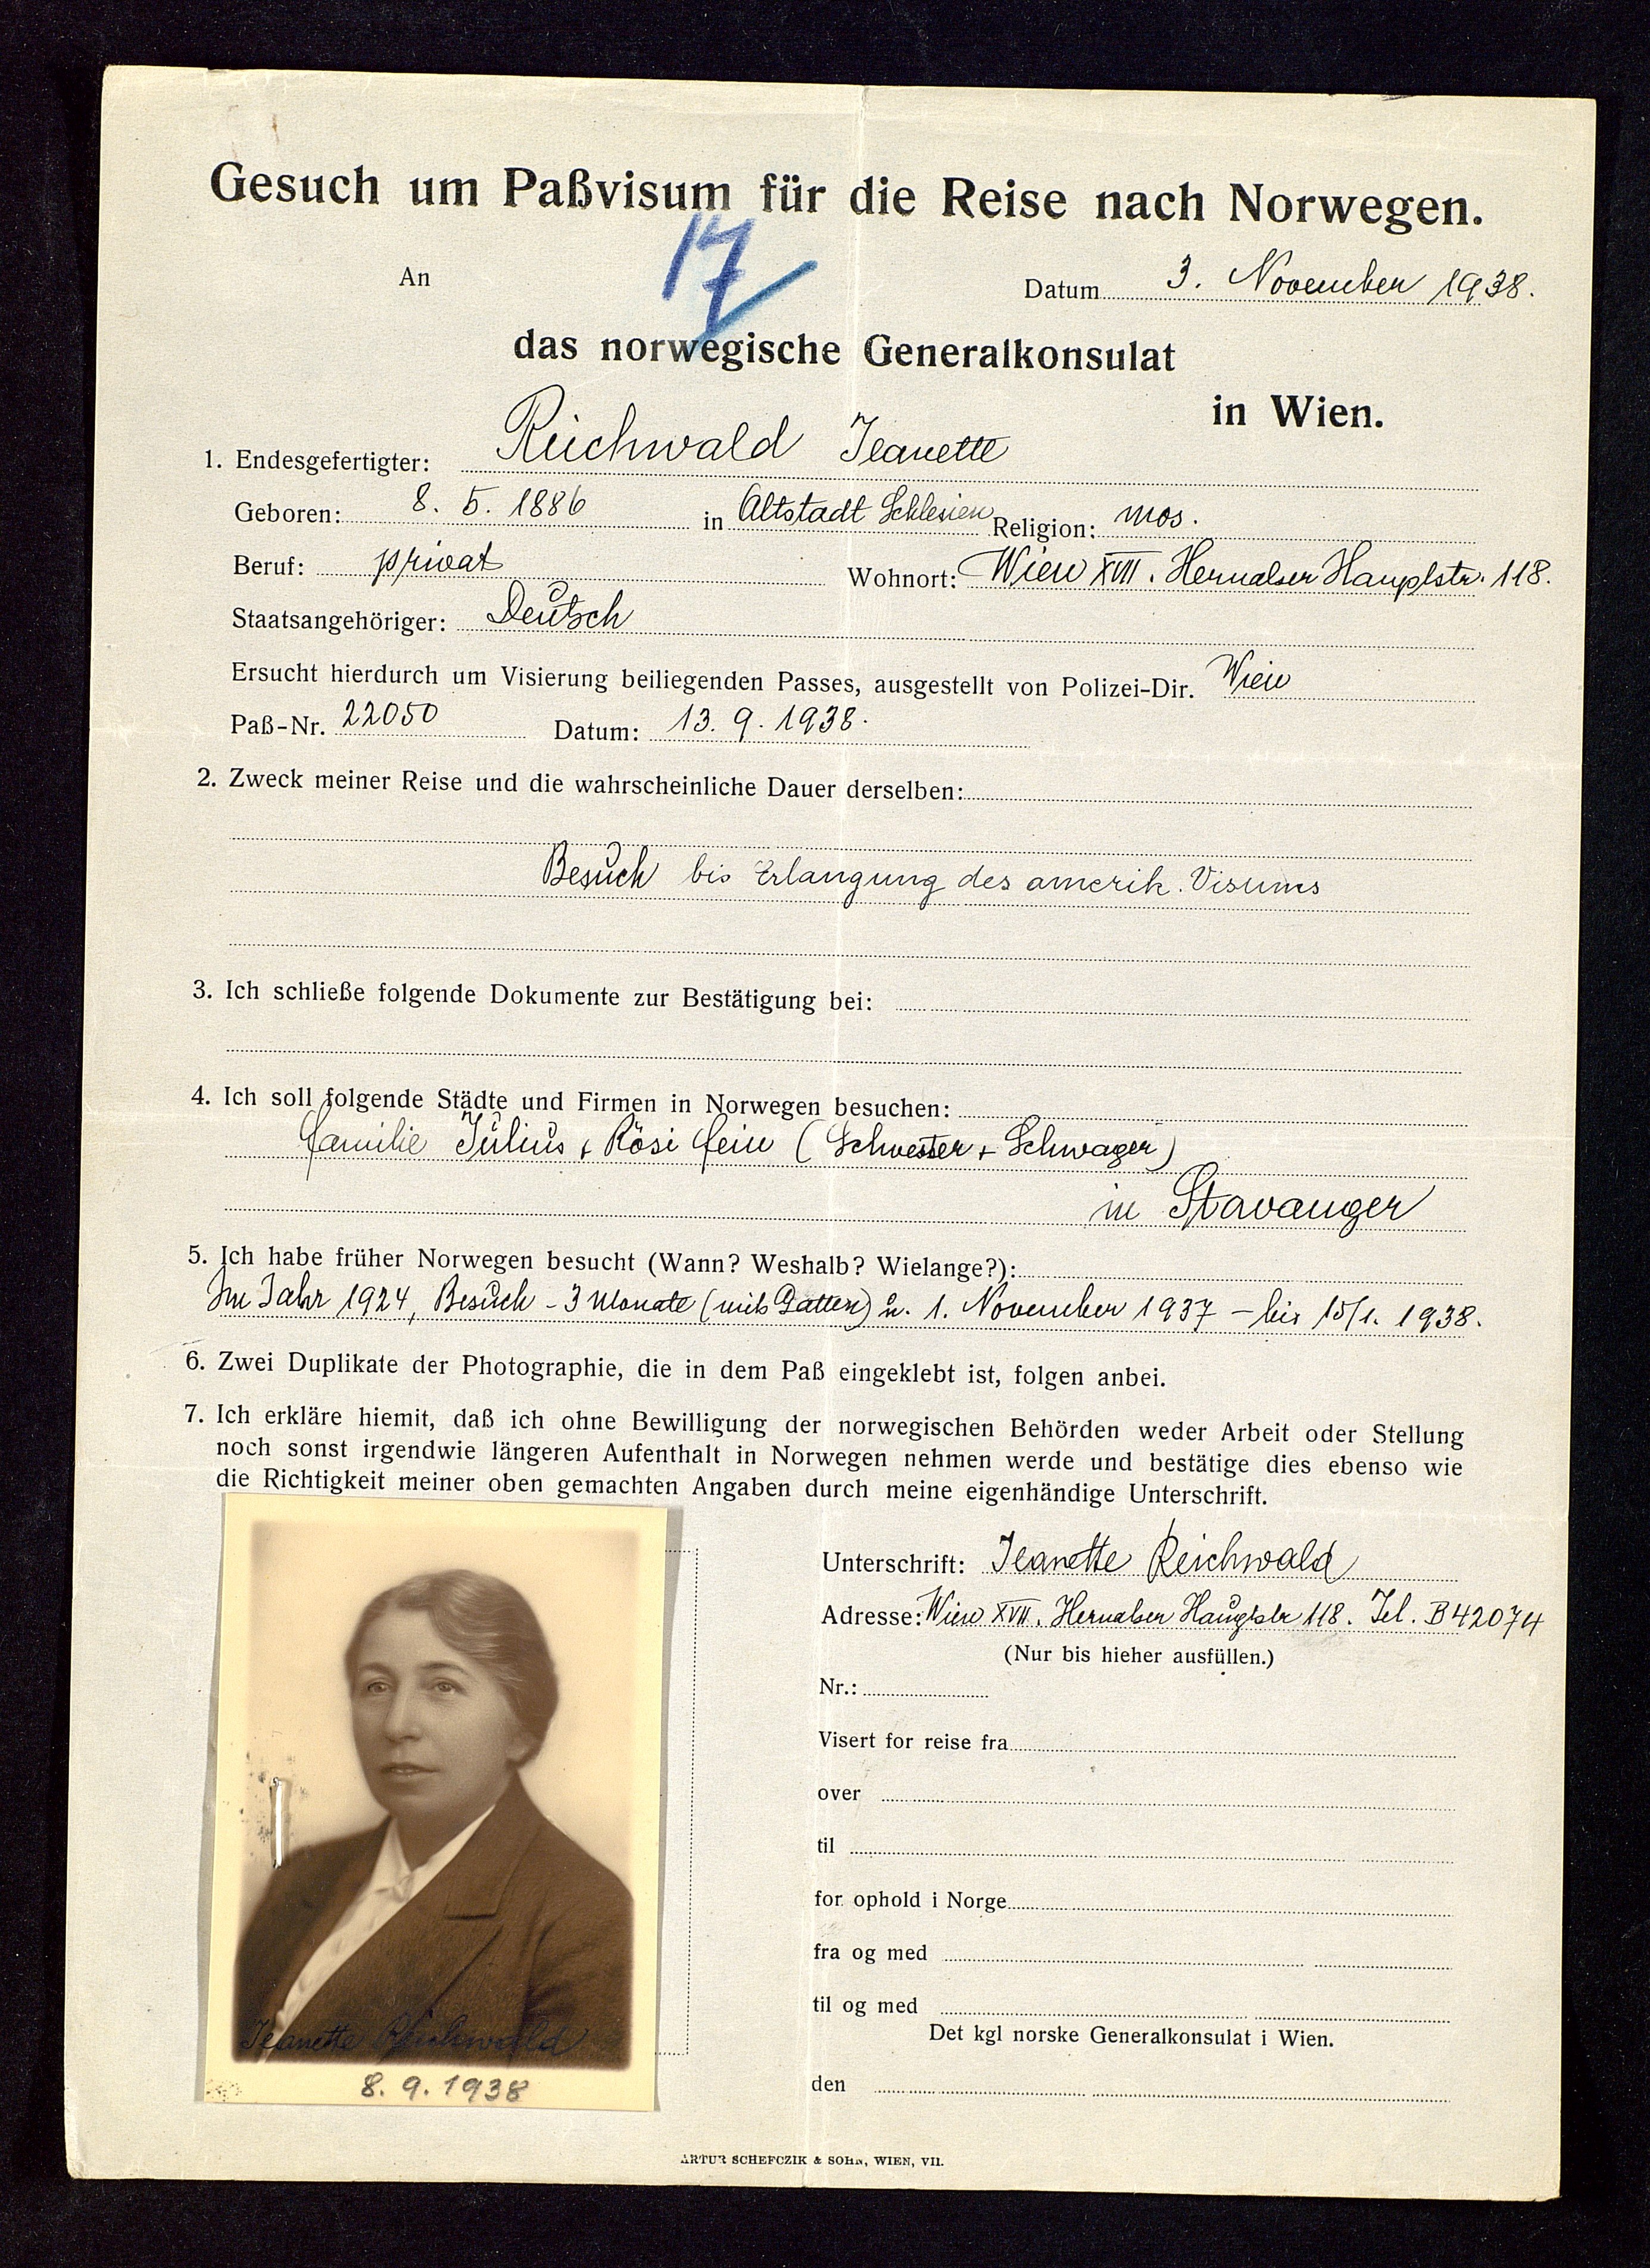 Gesuch um Paßvisum für die Reise nach Norwegen.
17
An
Datum 3. November 1938.
das norwegische Generalkonsulat
in Wien.
1. Endesgefertigter: Reichwald Jeanette
Geboren: 8. 5. 1886 in Altstadt Schlesien Religion: mos.
Beruf: privat Wohnort: Wien XVII. Hernalser Hauptstr. 118.
Staatsangehöriger: Deutsch
Ersucht hierdurch um Visierung beiliegenden Passes, ausgestellt von Polizei-Dir. Wien
Paß-Nr. 22050 Datum: 13. 9. 1938.
2. Zweck meiner Reise und die wahrscheinliche Dauer derselben:
Besuch bis Erlangung des amerik. Visums
3. Ich schließe folgende Dokumente zur Bestätigung bei:
4. Ich soll folgende Städte und Firmen in Norwegen besuchen:
Familie Julius + Rösi Fein (Schwester + Schwager)
in Stavanger
5. Ich habe früher Norwegen besucht (Wann? Weshalb? Wielange?):
Im Jahr 1924, Besuch - 3 Monate (mit Gatten) u. 1. November 1937 - bis 15/1. 1938.
6. Zwei Duplikate der Photographie, die in dem Paß eingeklebt ist, folgen anbei.
7. Ich erkläre hiemit, daß ich ohne Bewilligung der norwegischen Behörden weder Arbeit oder Stellung
noch sonst irgendwie längeren Aufenthalt in Norwegen nehmen werde und bestätige dies ebenso wie
die Richtigkeit meiner oben gemachten Angaben durch meine eigenhändige Unterschrift.
Unterschrift: Jeanette Reichwald
Adresse: Wien XVII. Hernalser Hauptstr 118. Tel. B42074
(Nur bis hieher ausfüllen.)
Nr.:
Visert for reise fra
over
til
for ophold i Norge
fra og med
til og med
Det kgl norske Generalkonsulat i Wien.
den
Jeanette Reichwald
8. 9. 1938
ARTUR SCHEFCZIK & SOHN, WIEN, VII.